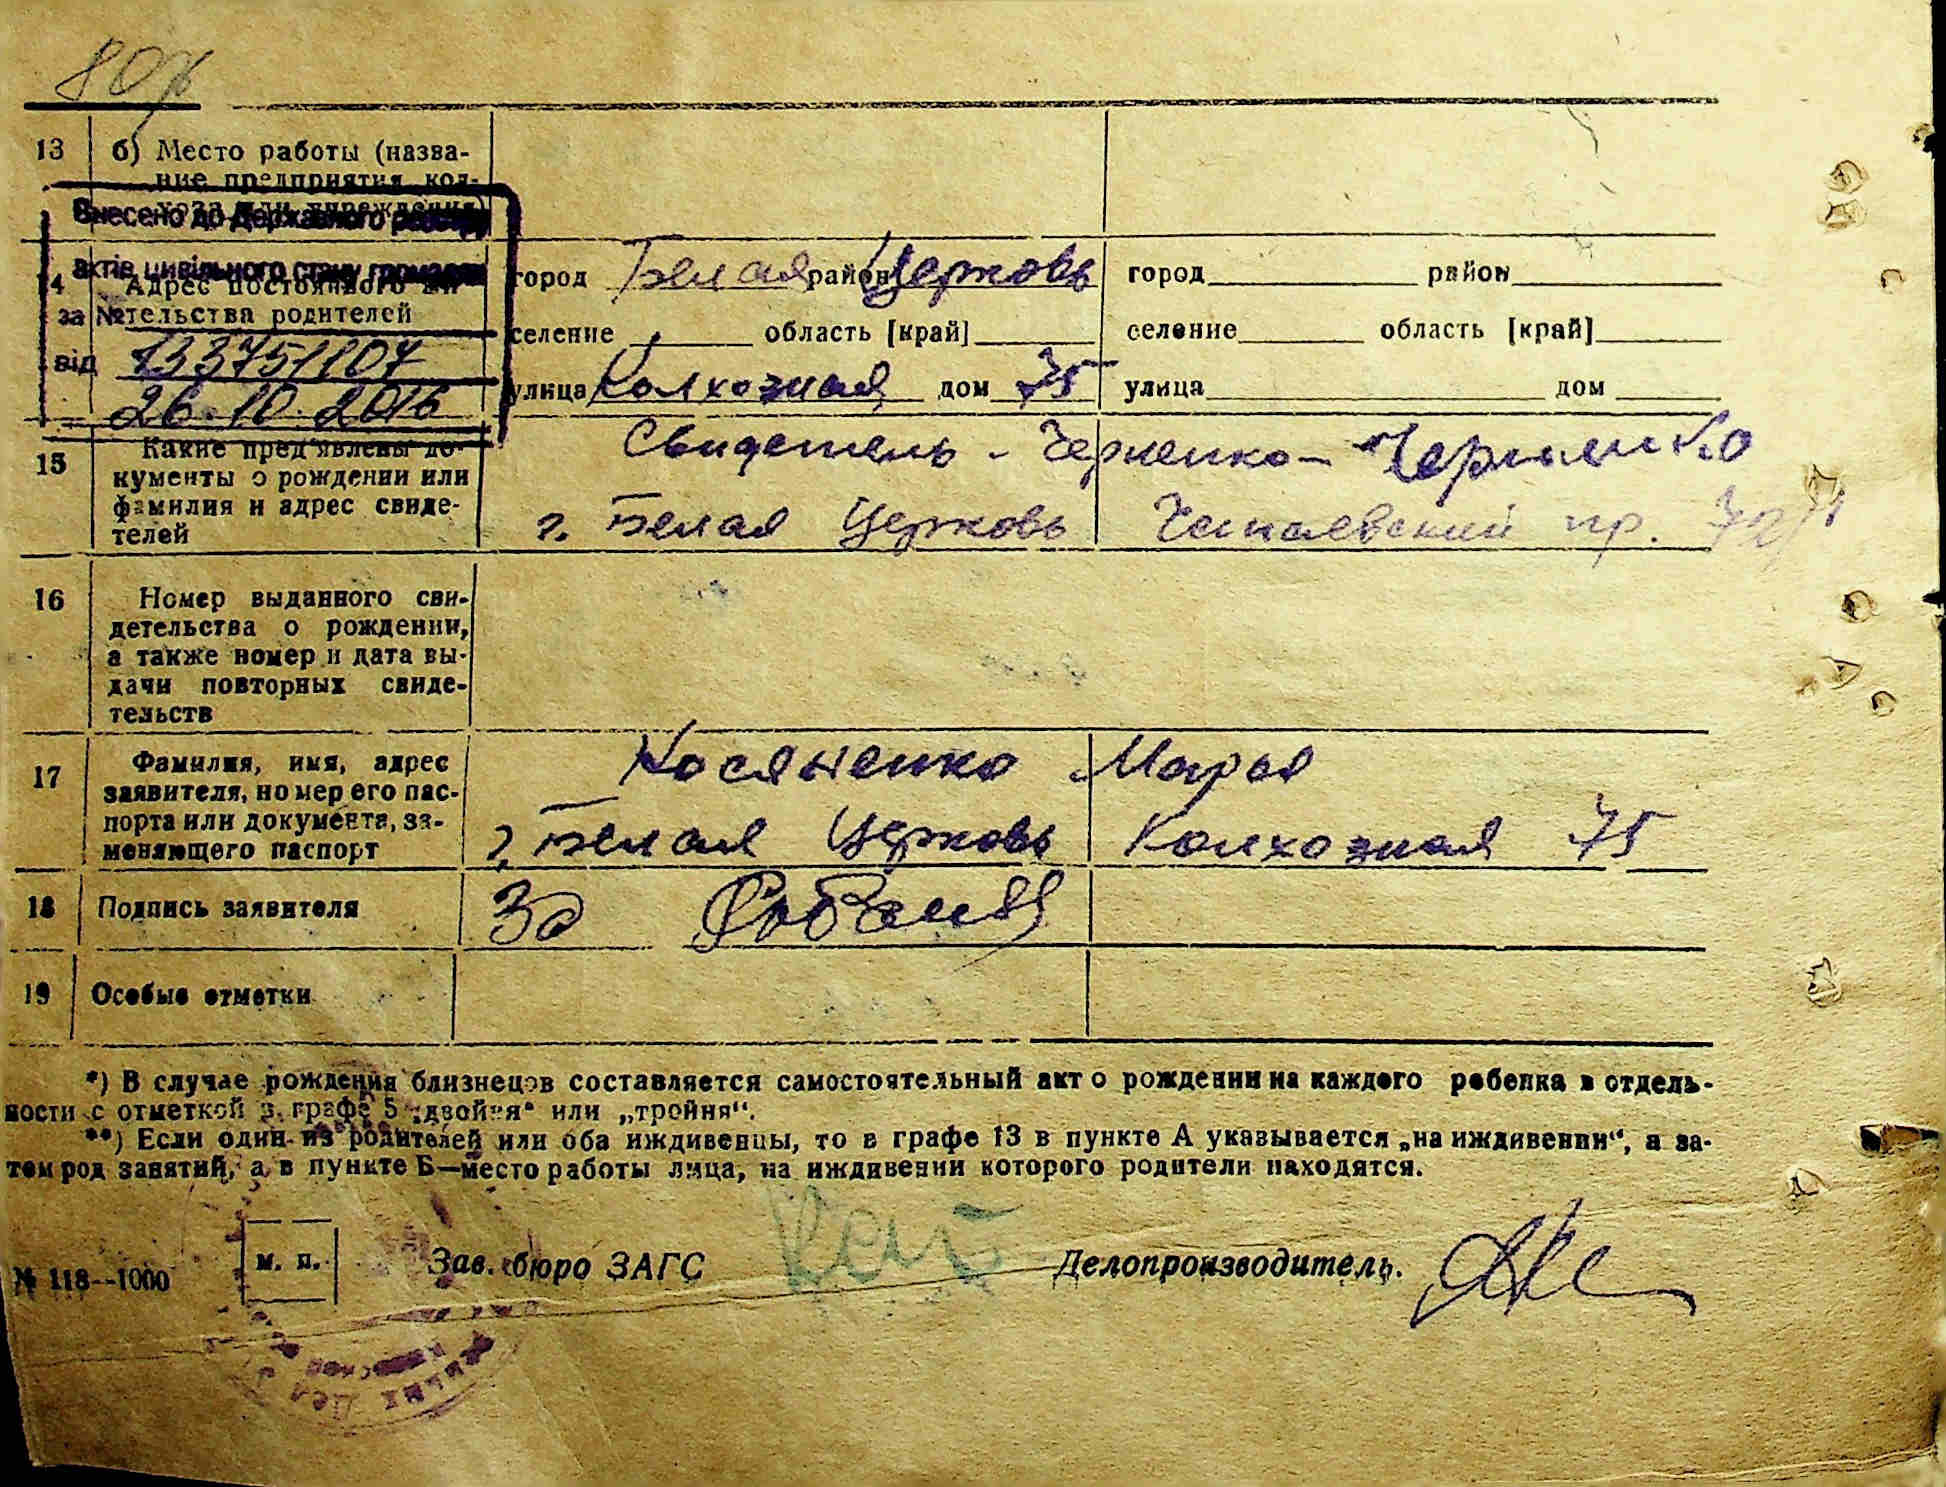 13 б) Место работы (назва-
ние предприятия, кол-
хоза или учреждения)
Внесено до Державного реєстру
актів цивільного стану громадян
за №
133751107
від
26.10.2016
14 Адрес постоянного жи-
тельства родителей
город Белая Церковь район город район
селение область [край] селение область [край]
улица Колхозная дом 75 улица дом
15 Какие пред'явлены до-
кументы о рождении или
фамилия и адрес свиде-
телей
Свидетель - Черненко -
г. Белая Церковь Чапаевский пр.
16 Номер выданного сви-
детельства о рождении,
а также номер и дата вы-
дачи повторных свиде-
тельств
17 Фамилия, имя, адрес
заявителя, номер его пас-
порта или документа, за-
меняющего паспорт
Косяненко Марья
г. Белая Церковь Колхозная 75
18 Подпись заявителя
За
19 Особые отметки
*) В случае рождения близнецов составляется самостоятельный акт о рождении на каждого ребенка в отдель-
ности с отметкой в графе 5 „двойня“ или „тройня“.
**) Если один из родителей или оба иждивенцы, то в графе 13 в пункте А указывается „на иждивении“, а за-
тем род занятий, а в пункте Б—место работы лица, на иждивении которого родители находятся.
м. п. Зав. бюро ЗАГС Делопроизводитель.
№ 118--1000